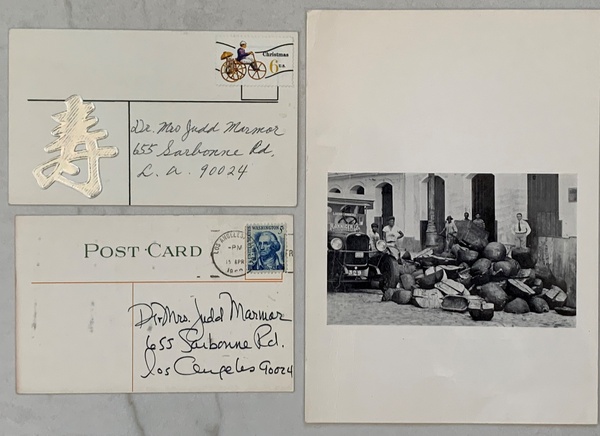 Christmas
6 U.S.
寿
Dr. Mrs Judd Marmor
655 Sarbonne Rd.
L. A. 90024
POST CARD
WASHINGTON 5
LOS ANGELES
PM
Dr + Mrs. Judd Marmor
655 Sarbonne Rd.
Los Angeles 90024